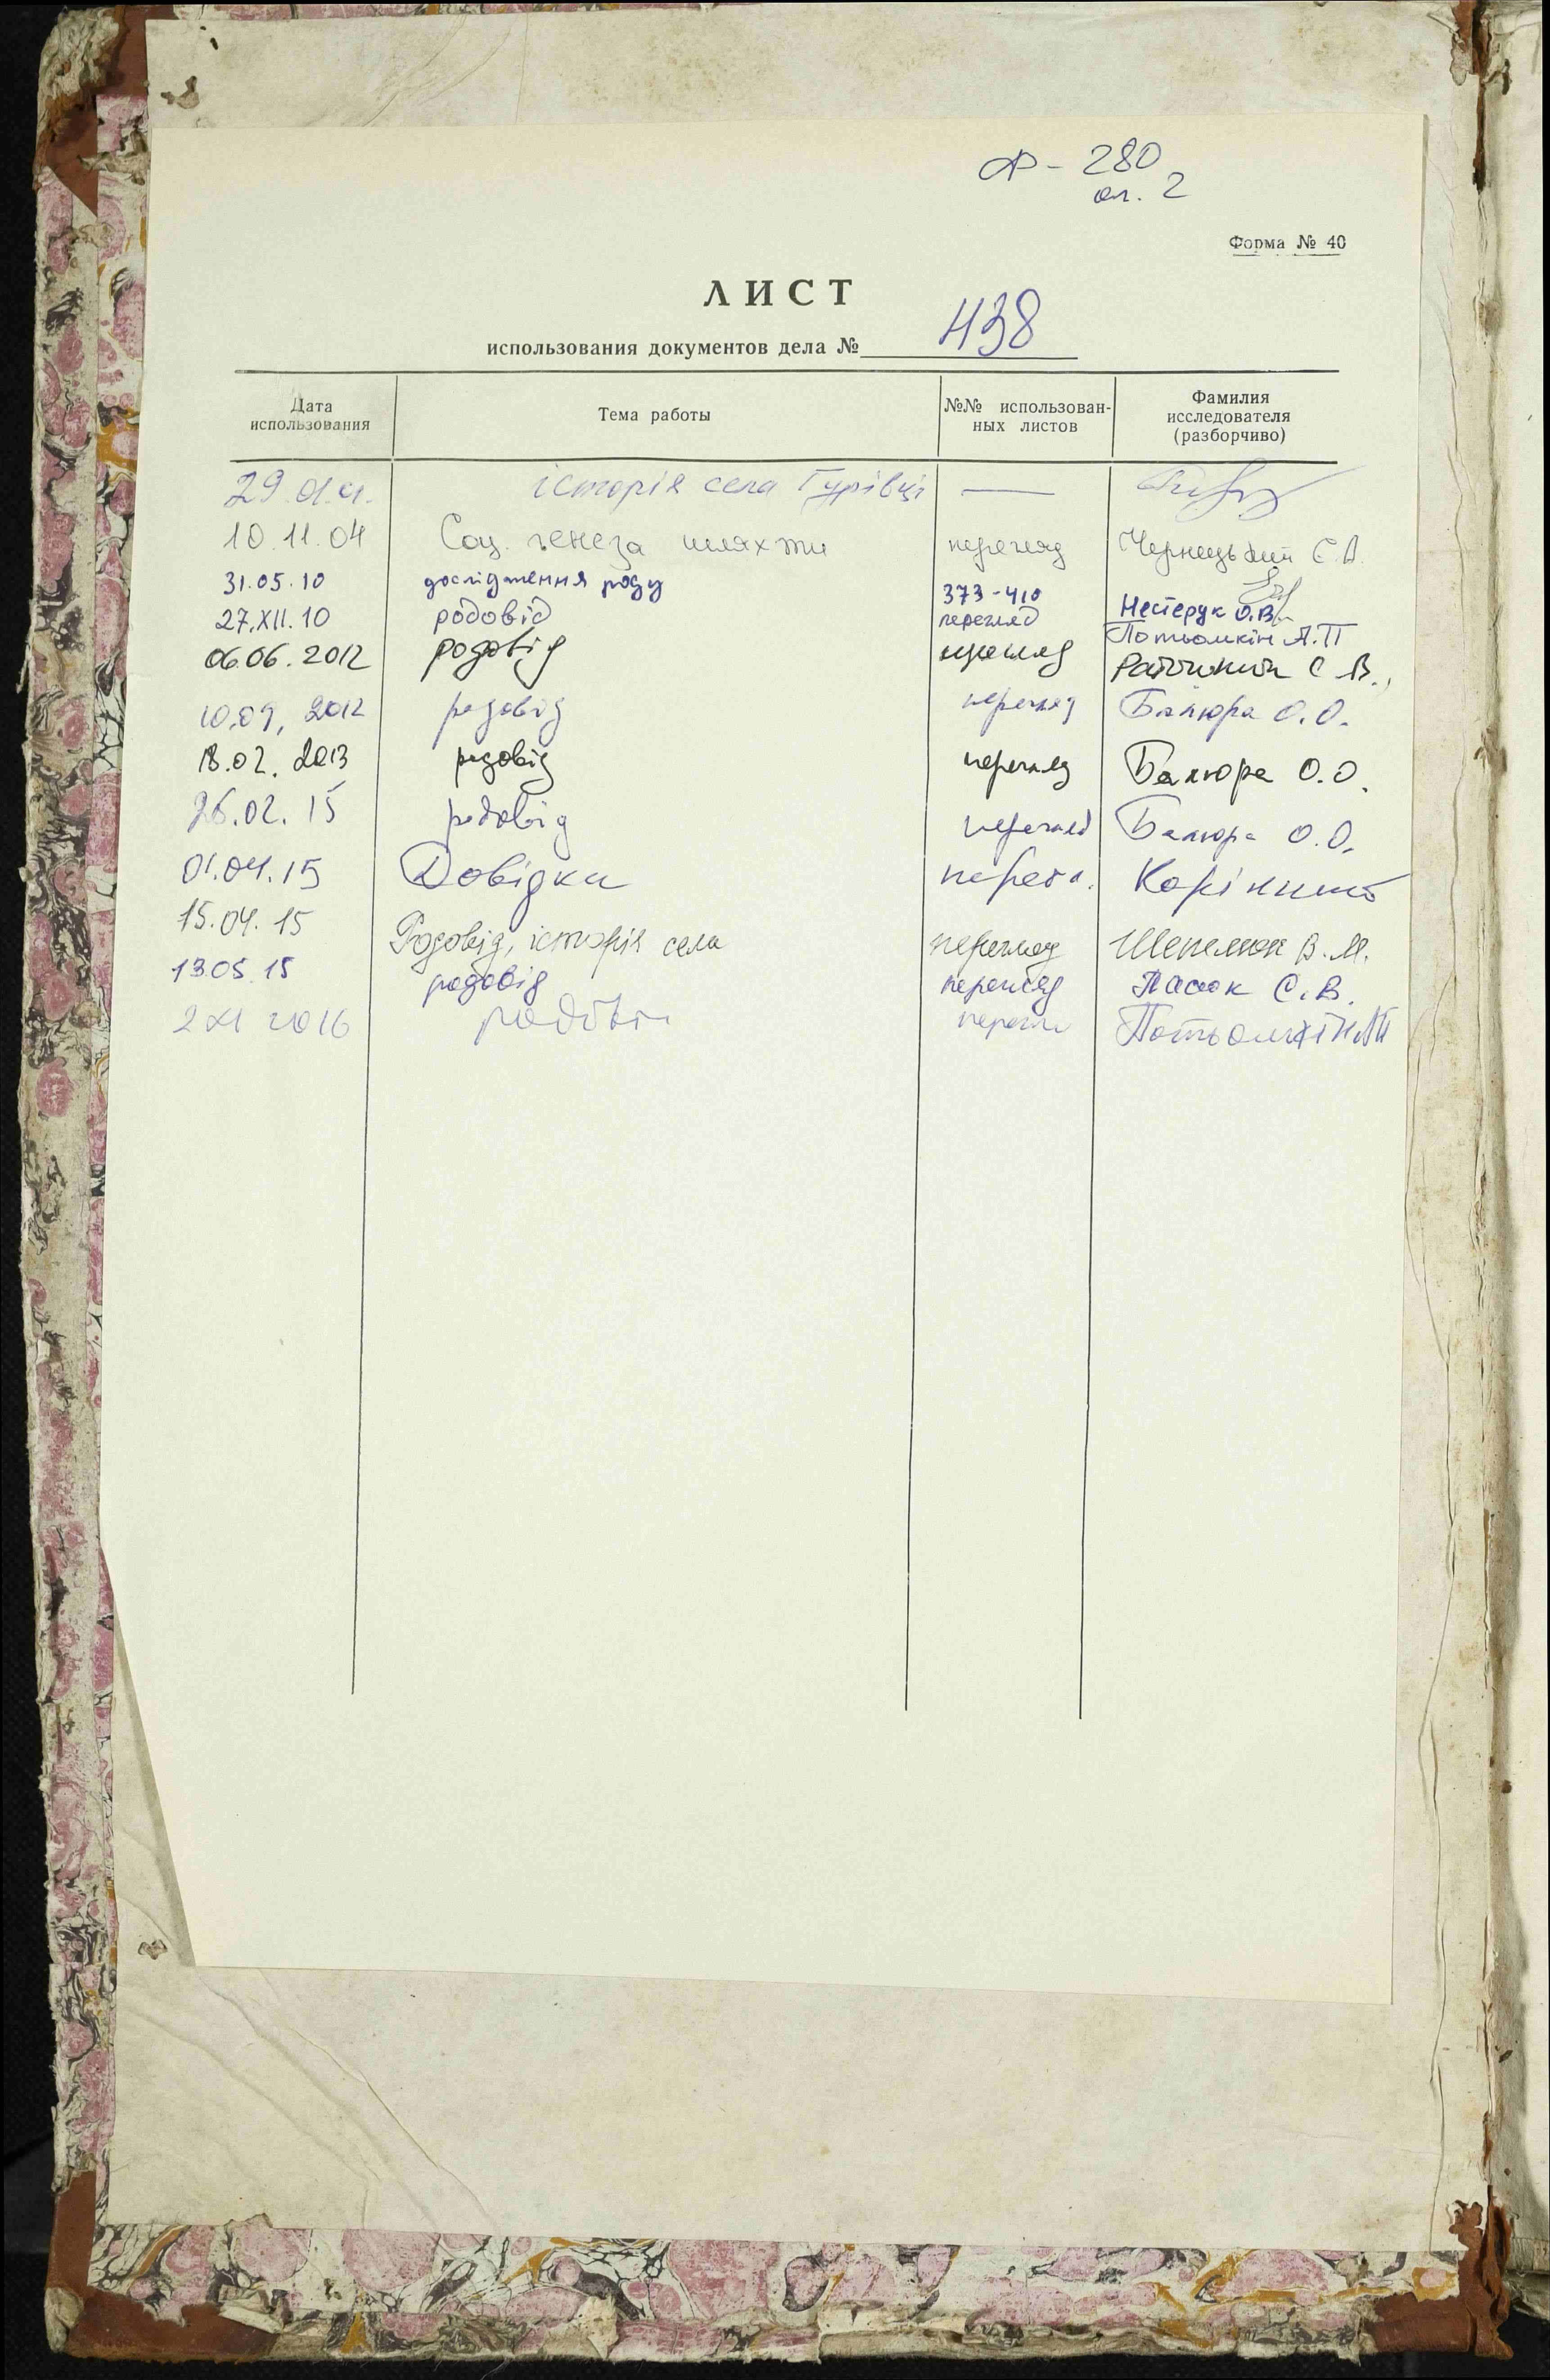 Ф - 280
оп. 2
Форма № 40
ЛИСТ
использования документов дела № 438
Дата использования | Тема работы | №№ использован-ных листов | Фамилия исследователя (разборчиво)
29. історія села Гурівці —
10.11.04 Соц. генеза шляхти перегляд Чернецький Є.А.
31.05.10 дослідження роду 373-410 Нестерук О.В.
27.XII.10 родовід перегляд Потьомкін А.П
06.06.2012 родовід перегляд С.В.
10.09, 2012 родовід перегляд Балюра О.О.
18.02. 2013 родовід перегляд Балюра О.О.
26.02. 15 родовід перегляд Балюра О.О.
01.04.15 Довідки перегл.
15.04.15 Родовід, історія села перегляд Шепелюк В.М.
13.05.15 родовід перегляд Пасюк С.В.
2 XI 2016 родовід перегл Потьомкін АП